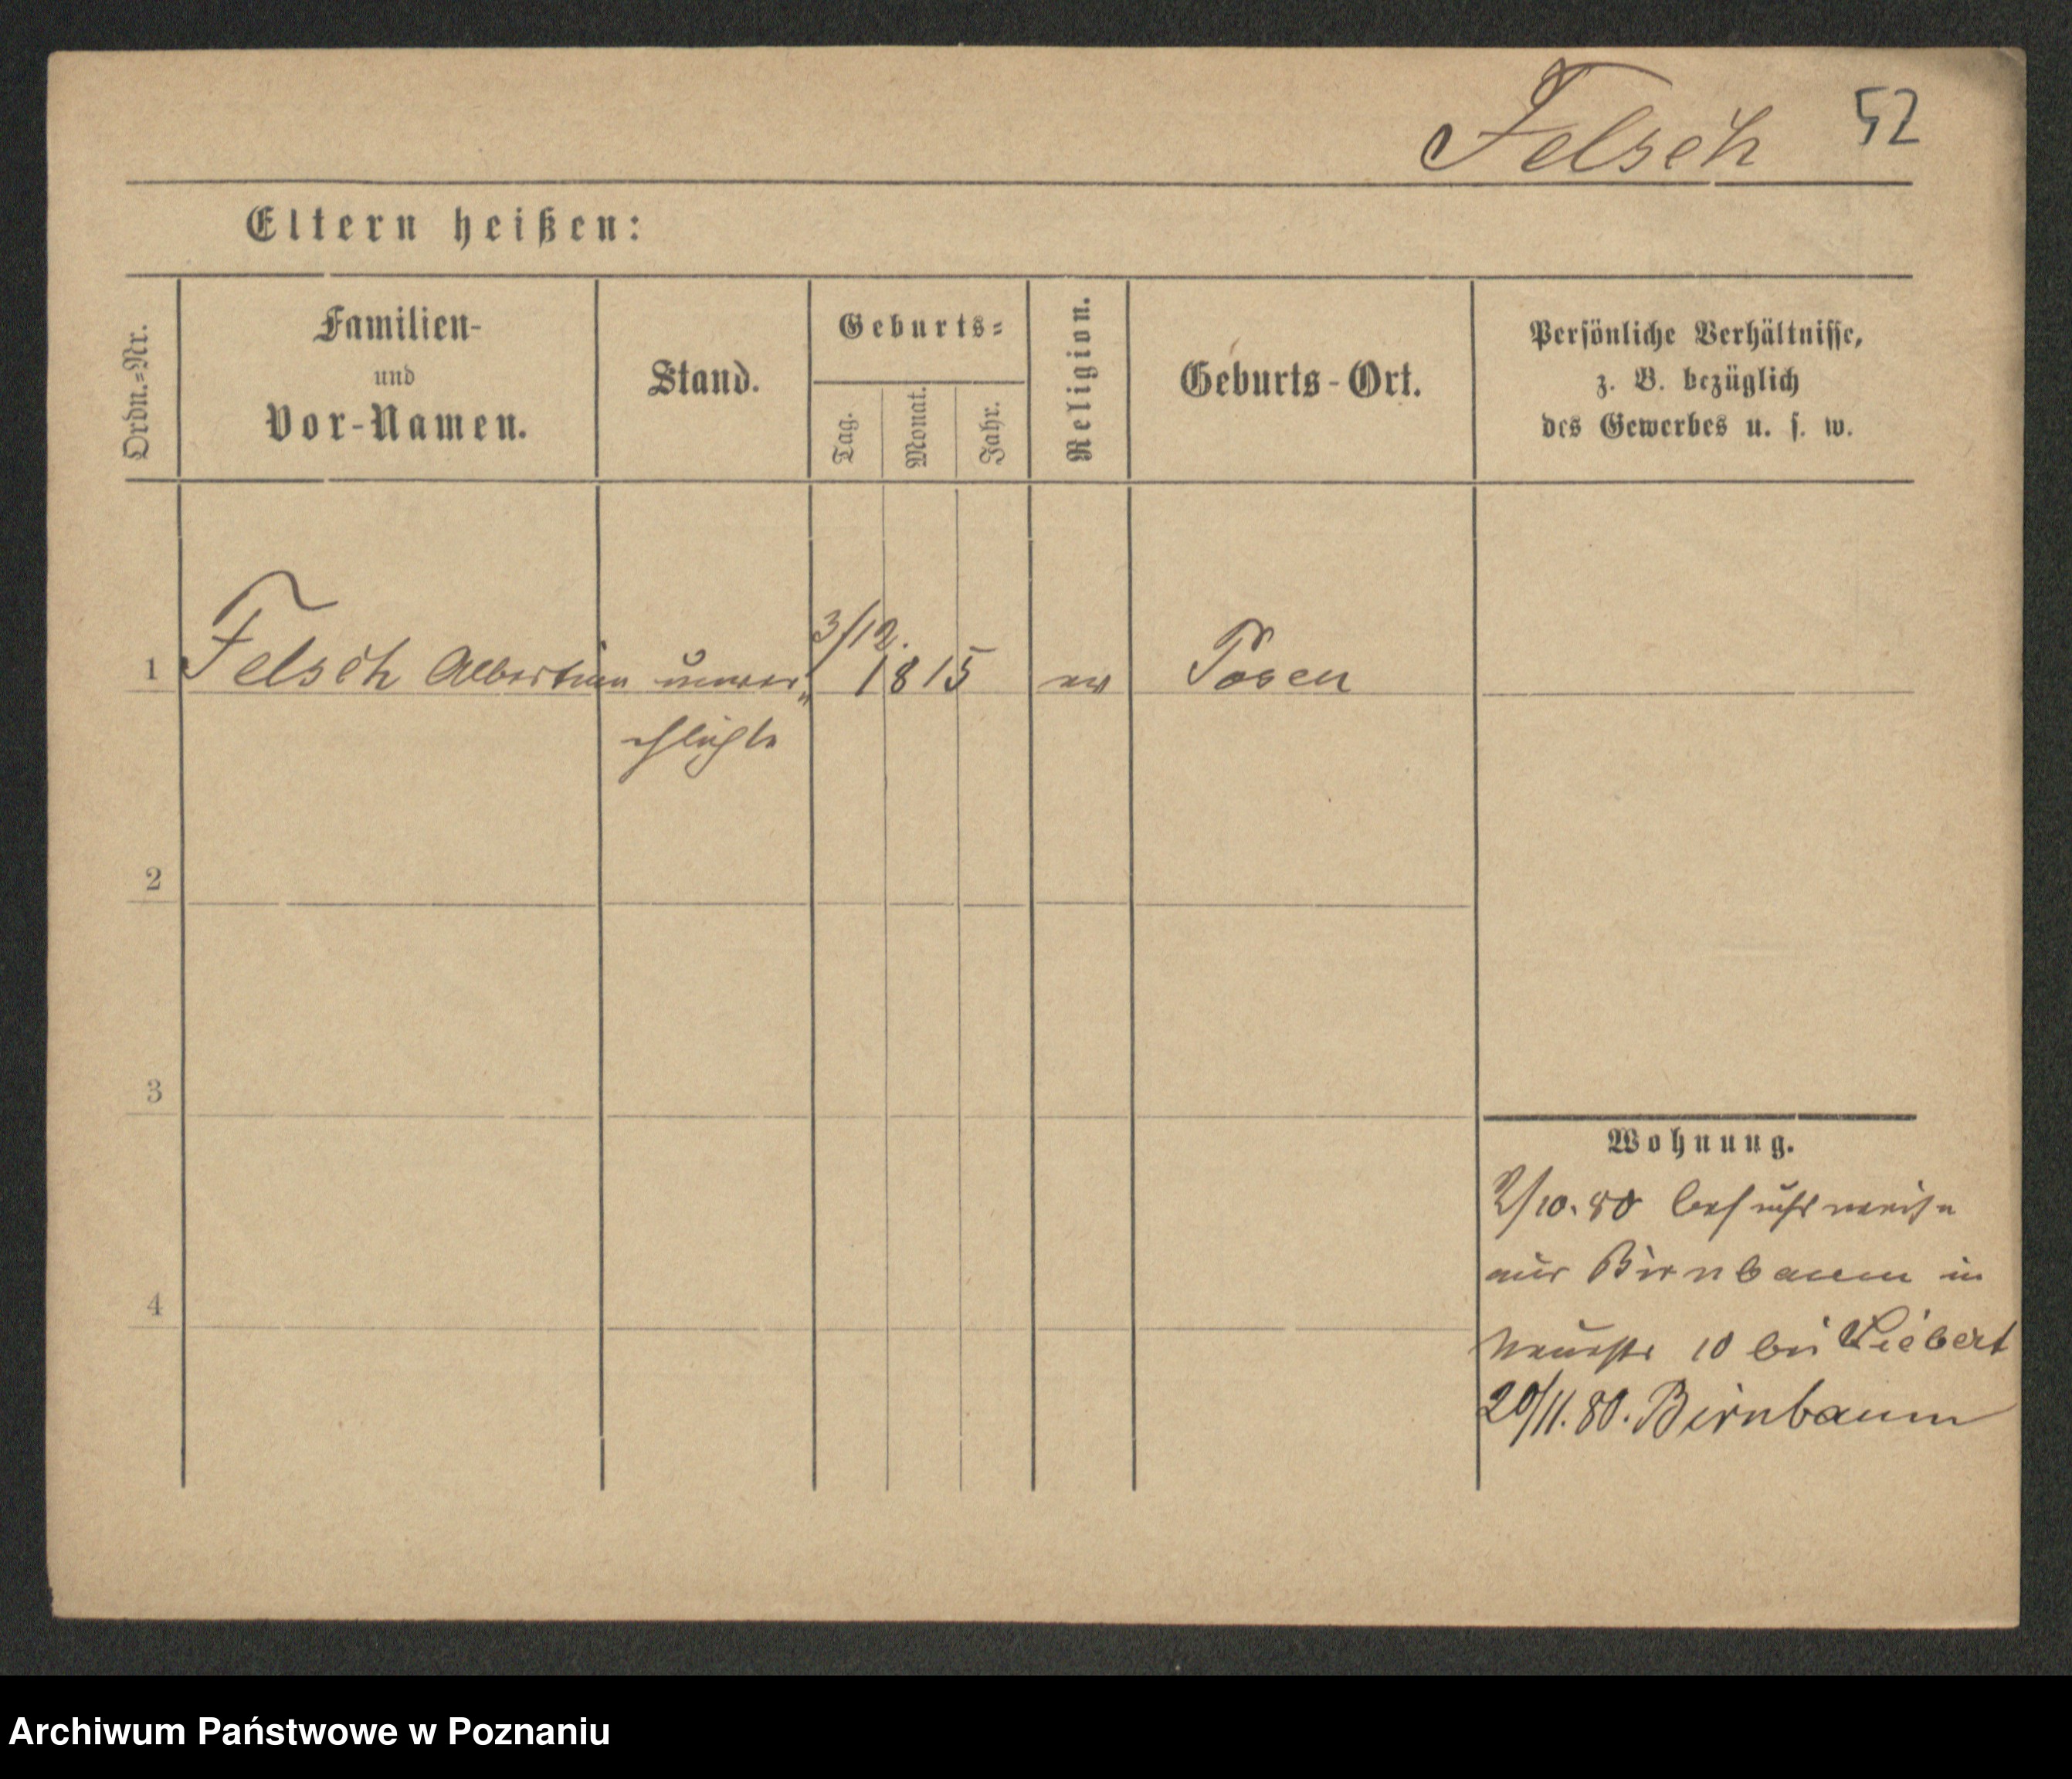 Felsch 52
Eltern heißen:
Ordn.=Nr.
Familien-
und
Vor-Namen.
Stand.
Geburts=
Tag.
Monat.
Jahr.
Religion.
Geburts-Ort.
Persönliche Verhältnisse,
z. B. bezüglich
des Gewerbes u. s. w.
1 Felsch Albertine unver"
ehlichte
3/12.
1815
ev
Posen
2
3
4
Wohnung.
2/10.80 besuchsweise
aus Birnbaum in
Neuestr 10 bei Liebert
20/11.80. Birnbaum
Archiwum Państwowe w Poznaniu